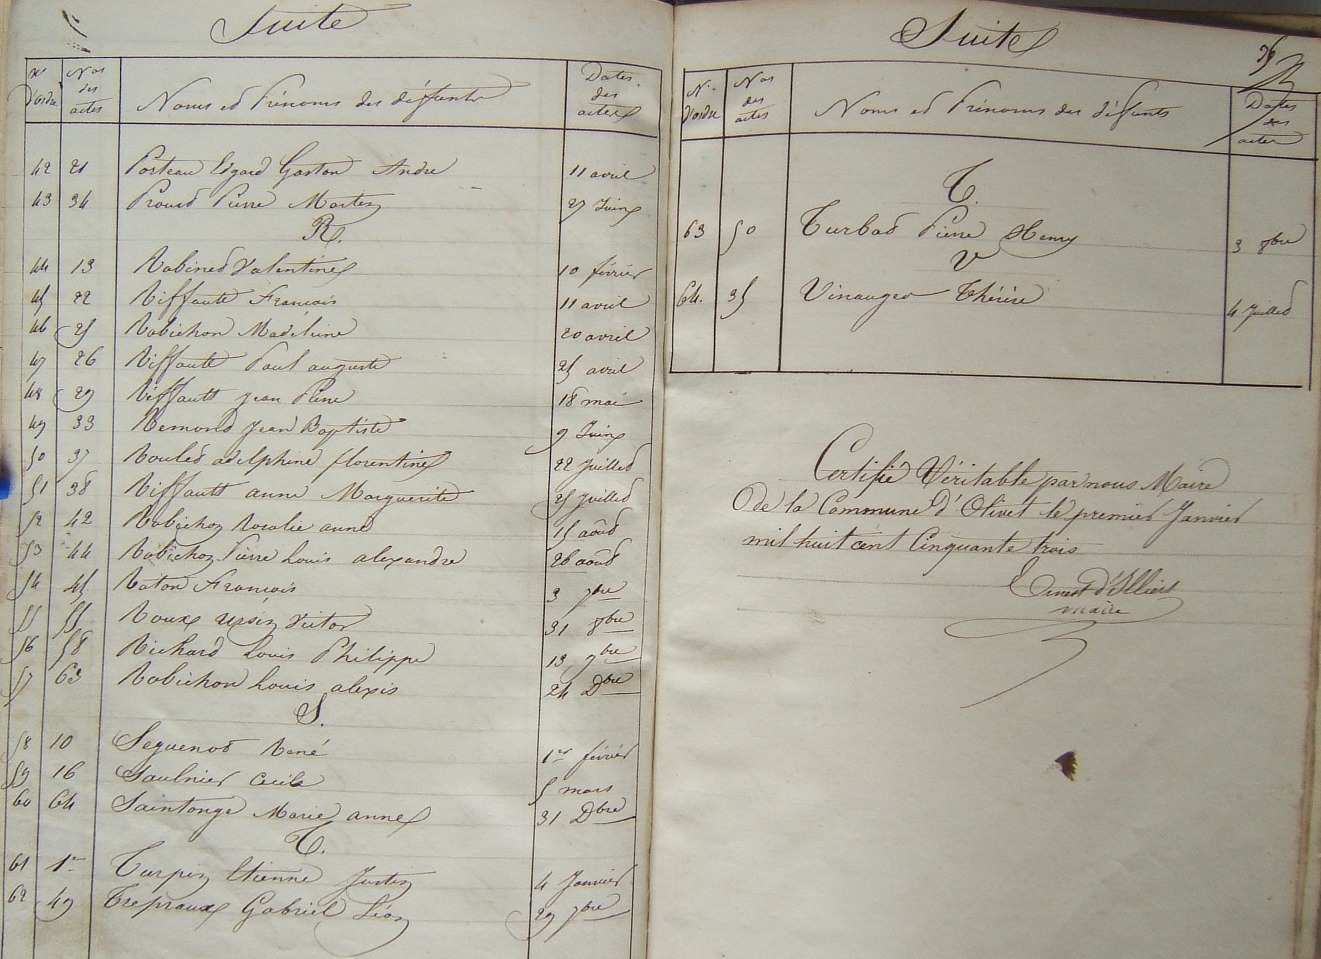 Suite
Nº d'ordre Nos des actes Noms et Prénoms des défunts Dates des actes
42 21 Porteau Edgard Gaston André 11 avril
43 34 Proust Pierre Martin 27 Juin
R.
44 13 Robined Valentine 10 février
45 22 Riffault François 11 avril
46 25 Robichon Madeleine 20 avril
47 26 Riffault Paul auguste 25 avril
48 29 Riffault Jean Pierre 18 mai
49 33 Remond Jean Baptiste 9 Juin
50 37 Rouled adelphine florentine 22 Juilled
51 38 Riffault anne Marguerite 25 Juilled
52 42 Robichon Rosalie anne 15 aoûd
53 44 Robichon Pierre Louis alexandre 26 aoûd
54 45 Raton François 3 7bre
55 55 Roux Victor 31 8bre
56 58 Richard Louis Philippe 13 9bre
57 63 Robichon Louis alexis 24 Dbre
S.
58 10 Seguenod René 1er février
59 16 Saulnier Cecile 5 mars
60 64 Saintonge Marie anne 31 Dbre
T.
61 1er Turpin Etienne Justin 4 Janvier
62 49 Trepraux Gabriel Léon 29 7bre
Suite
Nº d'ordre Nos des actes Noms et Prénoms des défunts Dates des actes
T.
63 50 Turbad Pierre Henry 3 8bre
V
64. 35 Vinauger Thérèse 4 Juilled
Certifié Véritable par nous Maire
De la Commune d'Olivet le premier Janvier
mil huit cent Cinquante trois
Ernest d'Illiers
maire